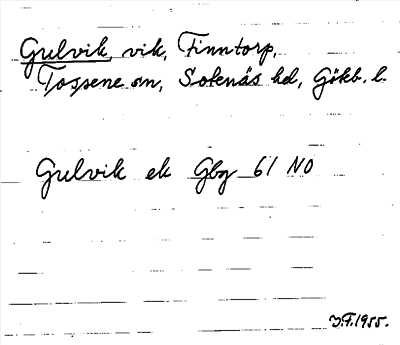 Gulvik, vik, Finntorp,
Tossene sn, Sotenäs hd, Götb. l.
Gulvik ek Gbg 61 NO
J.F. 1955.